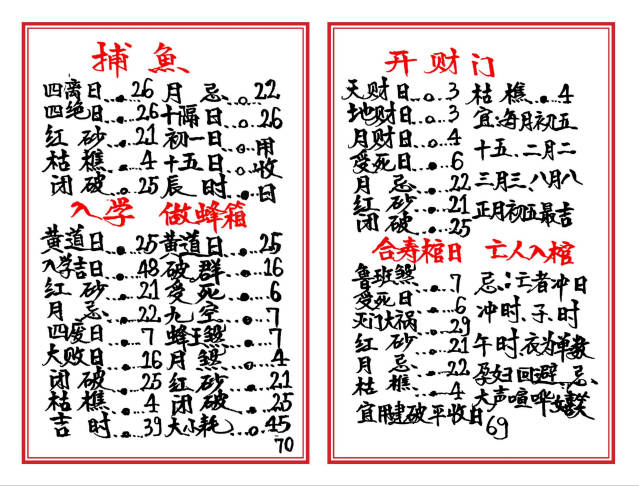 捕魚
四离日...26 月忌...22
四绝日...26 十隔日...26
红砂...21 初一日...用
枯樵...4 十五日...收
闭破...25 辰时...日
入学 做蜂箱
黄道日...25 黄道日...25
入学吉日...48 破群...16
红砂...21 受死...6
月忌...22 九空...7
四废日...7 蜂王煞...7
大败日...16 月煞...4
闭破...25 红砂...21
枯樵...4 闭破...25
吉时...39 大小耗...45
70
开财门
天财日...3 枯樵...4
地财日...3 宜:每月初五
月财日...4 十五、二月二
受死日...6 三月三、八月八
月忌...22 正月初五最吉
红砂...21
闭破...25
合寿棺日 亡人入棺
鲁班煞...7 忌:亡者冲日
受死日...6 冲时、子、时
灭门大祸...29 午时、衣为单数
红砂...21 孕妇回避、忌
月忌...22 大声喧哗嬉笑
枯樵...4
宜用建破平收日
69